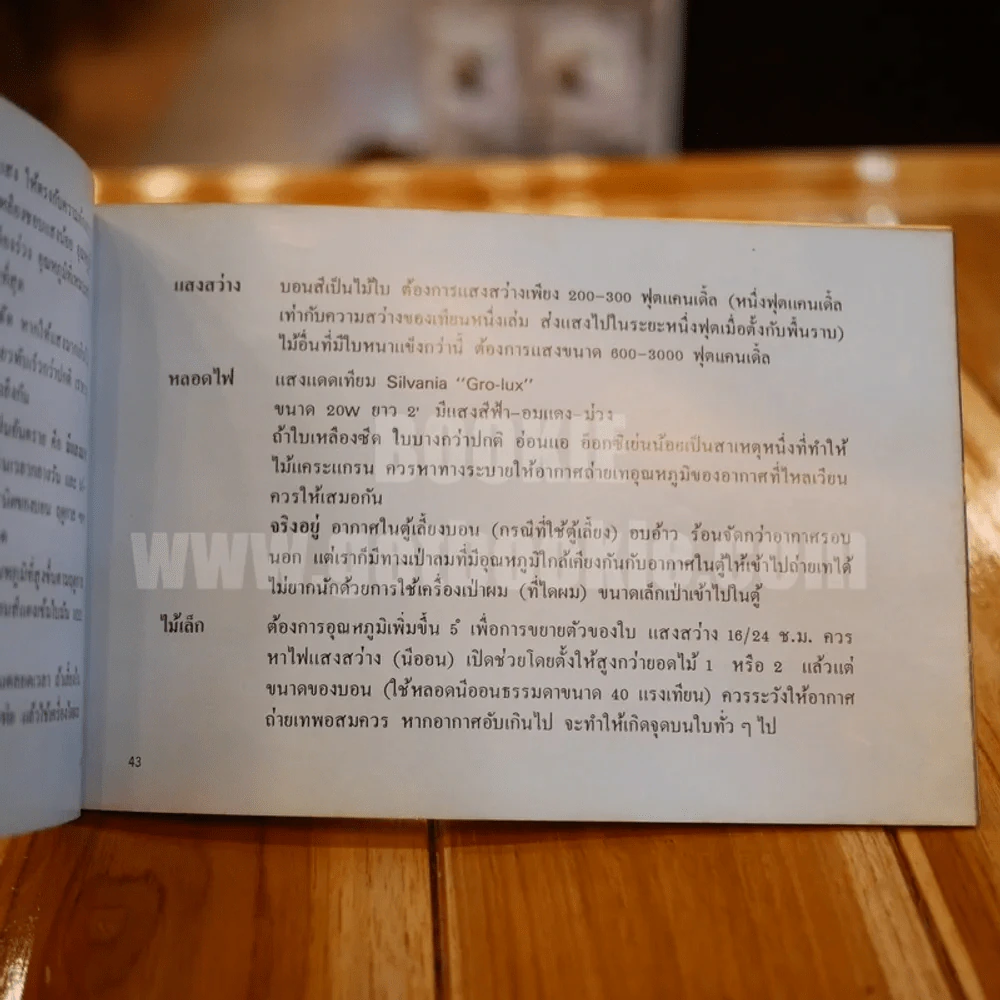 แสงสว่าง บอนสีเป็นไม้ใบ ต้องการแสงสว่างเพียง 200-300 ฟุตแคนเดิ้ล (หนึ่งฟุตแคนเดิ้ล
เท่ากับความสว่างของเทียนหนึ่งเล่ม ส่งแสงไปในระยะหนึ่งฟุตเมื่อตั้งกับพื้นราบ)
ไม้อื่นที่มีใบหนาแข็งกว่านี้ ต้องการแสงขนาด 600-3000 ฟุตแคนเดิ้ล
หลอดไฟ แสงแดดเทียม Silvania "Gro-lux"
ขนาด 20W ยาว 2' มีแสงสีฟ้า-อมแดง-ม่วง
ถ้าใบเหลืองซีด ใบบางกว่าปกติ อ่อนแอ อ๊อกซิเย่นน้อยเป็นสาเหตุหนึ่งที่ทำให้
ไม้แคระแกรน ควรหาทางระบายให้อากาศถ่ายเทอุณหภูมิของอากาศที่ไหลเวียน
ควรให้เสมอกัน
จริงอยู่ อากาศในตู้เลี้ยงบอน (กรณีที่ใช้ตู้เลี้ยง) อบอ้าว ร้อนจัดกว่าอากาศรอบ
นอก แต่เราก็มีทางเป่าลมที่มีอุณหภูมิใกล้เคียงกันกับอากาศในตู้ให้เข้าไปถ่ายเทได้
ไม่ยากนักด้วยการใช้เครื่องเป่าผม (ที่ไดผม) ขนาดเล็กเป่าเข้าไปในตู้
ไม้เล็ก ต้องการอุณหภูมิเพิ่มขึ้น 5° เพื่อการขยายตัวของใบ แสงสว่าง 16/24 ช.ม. ควร
หาไฟแสงสว่าง (นีออน) เปิดช่วยโดยตั้งให้สูงกว่ายอดไม้ 1 หรือ 2 แล้วแต่
ขนาดของบอน (ใช้หลอดนีออนธรรมดาขนาด 40 แรงเทียน) ควรระวังให้อากาศ
ถ่ายเทพอสมควร หากอากาศอับเกินไป จะทำให้เกิดจุดบนใบทั่ว ๆ ไป
43
BOOKIE